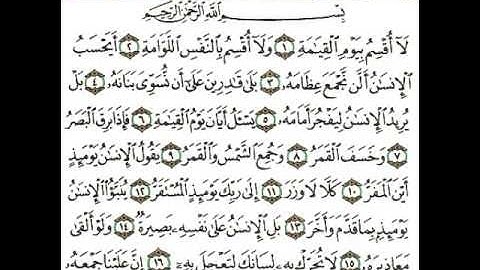 بِسْمِ اللَّهِ الرَّحْمَٰنِ الرَّحِيمِ
لَا أُقْسِمُ بِيَوْمِ الْقِيَامَةِ ١ وَلَا أُقْسِمُ بِالنَّفْسِ اللَّوَّامَةِ ٢ أَيَحْسَبُ
الْإِنسَانُ أَلَّن نَّجْمَعَ عِظَامَهُ ٣ بَلَىٰ قَادِرِينَ عَلَىٰ أَن نُّسَوِّيَ بَنَانَهُ ٤ بَلْ
يُرِيدُ الْإِنسَانُ لِيَفْجُرَ أَمَامَهُ ٥ يَسْأَلُ أَيَّانَ يَوْمُ الْقِيَامَةِ ٦ فَإِذَا بَرِقَ الْبَصَرُ
٧ وَخَسَفَ الْقَمَرُ ٨ وَجُمِعَ الشَّمْسُ وَالْقَمَرُ ٩ يَقُولُ الْإِنسَانُ يَوْمَئِذٍ
أَيْنَ الْمَفَرُّ ١٠ كَلَّا لَا وَزَرَ ١١ إِلَىٰ رَبِّكَ يَوْمَئِذٍ الْمُسْتَقَرُّ ١٢ يُنَبَّأُ الْإِنسَانُ
يَوْمَئِذٍ بِمَا قَدَّمَ وَأَخَّرَ ١٣ بَلِ الْإِنسَانُ عَلَىٰ نَفْسِهِ بَصِيرَةٌ ١٤ وَلَوْ أَلْقَىٰ
مَعَاذِيرَهُ ١٥ لَا تُحَرِّكْ بِهِ لِسَانَكَ لِتَعْجَلَ بِهِ ١٦ إِنَّ عَلَيْنَا جَمْعَهُ